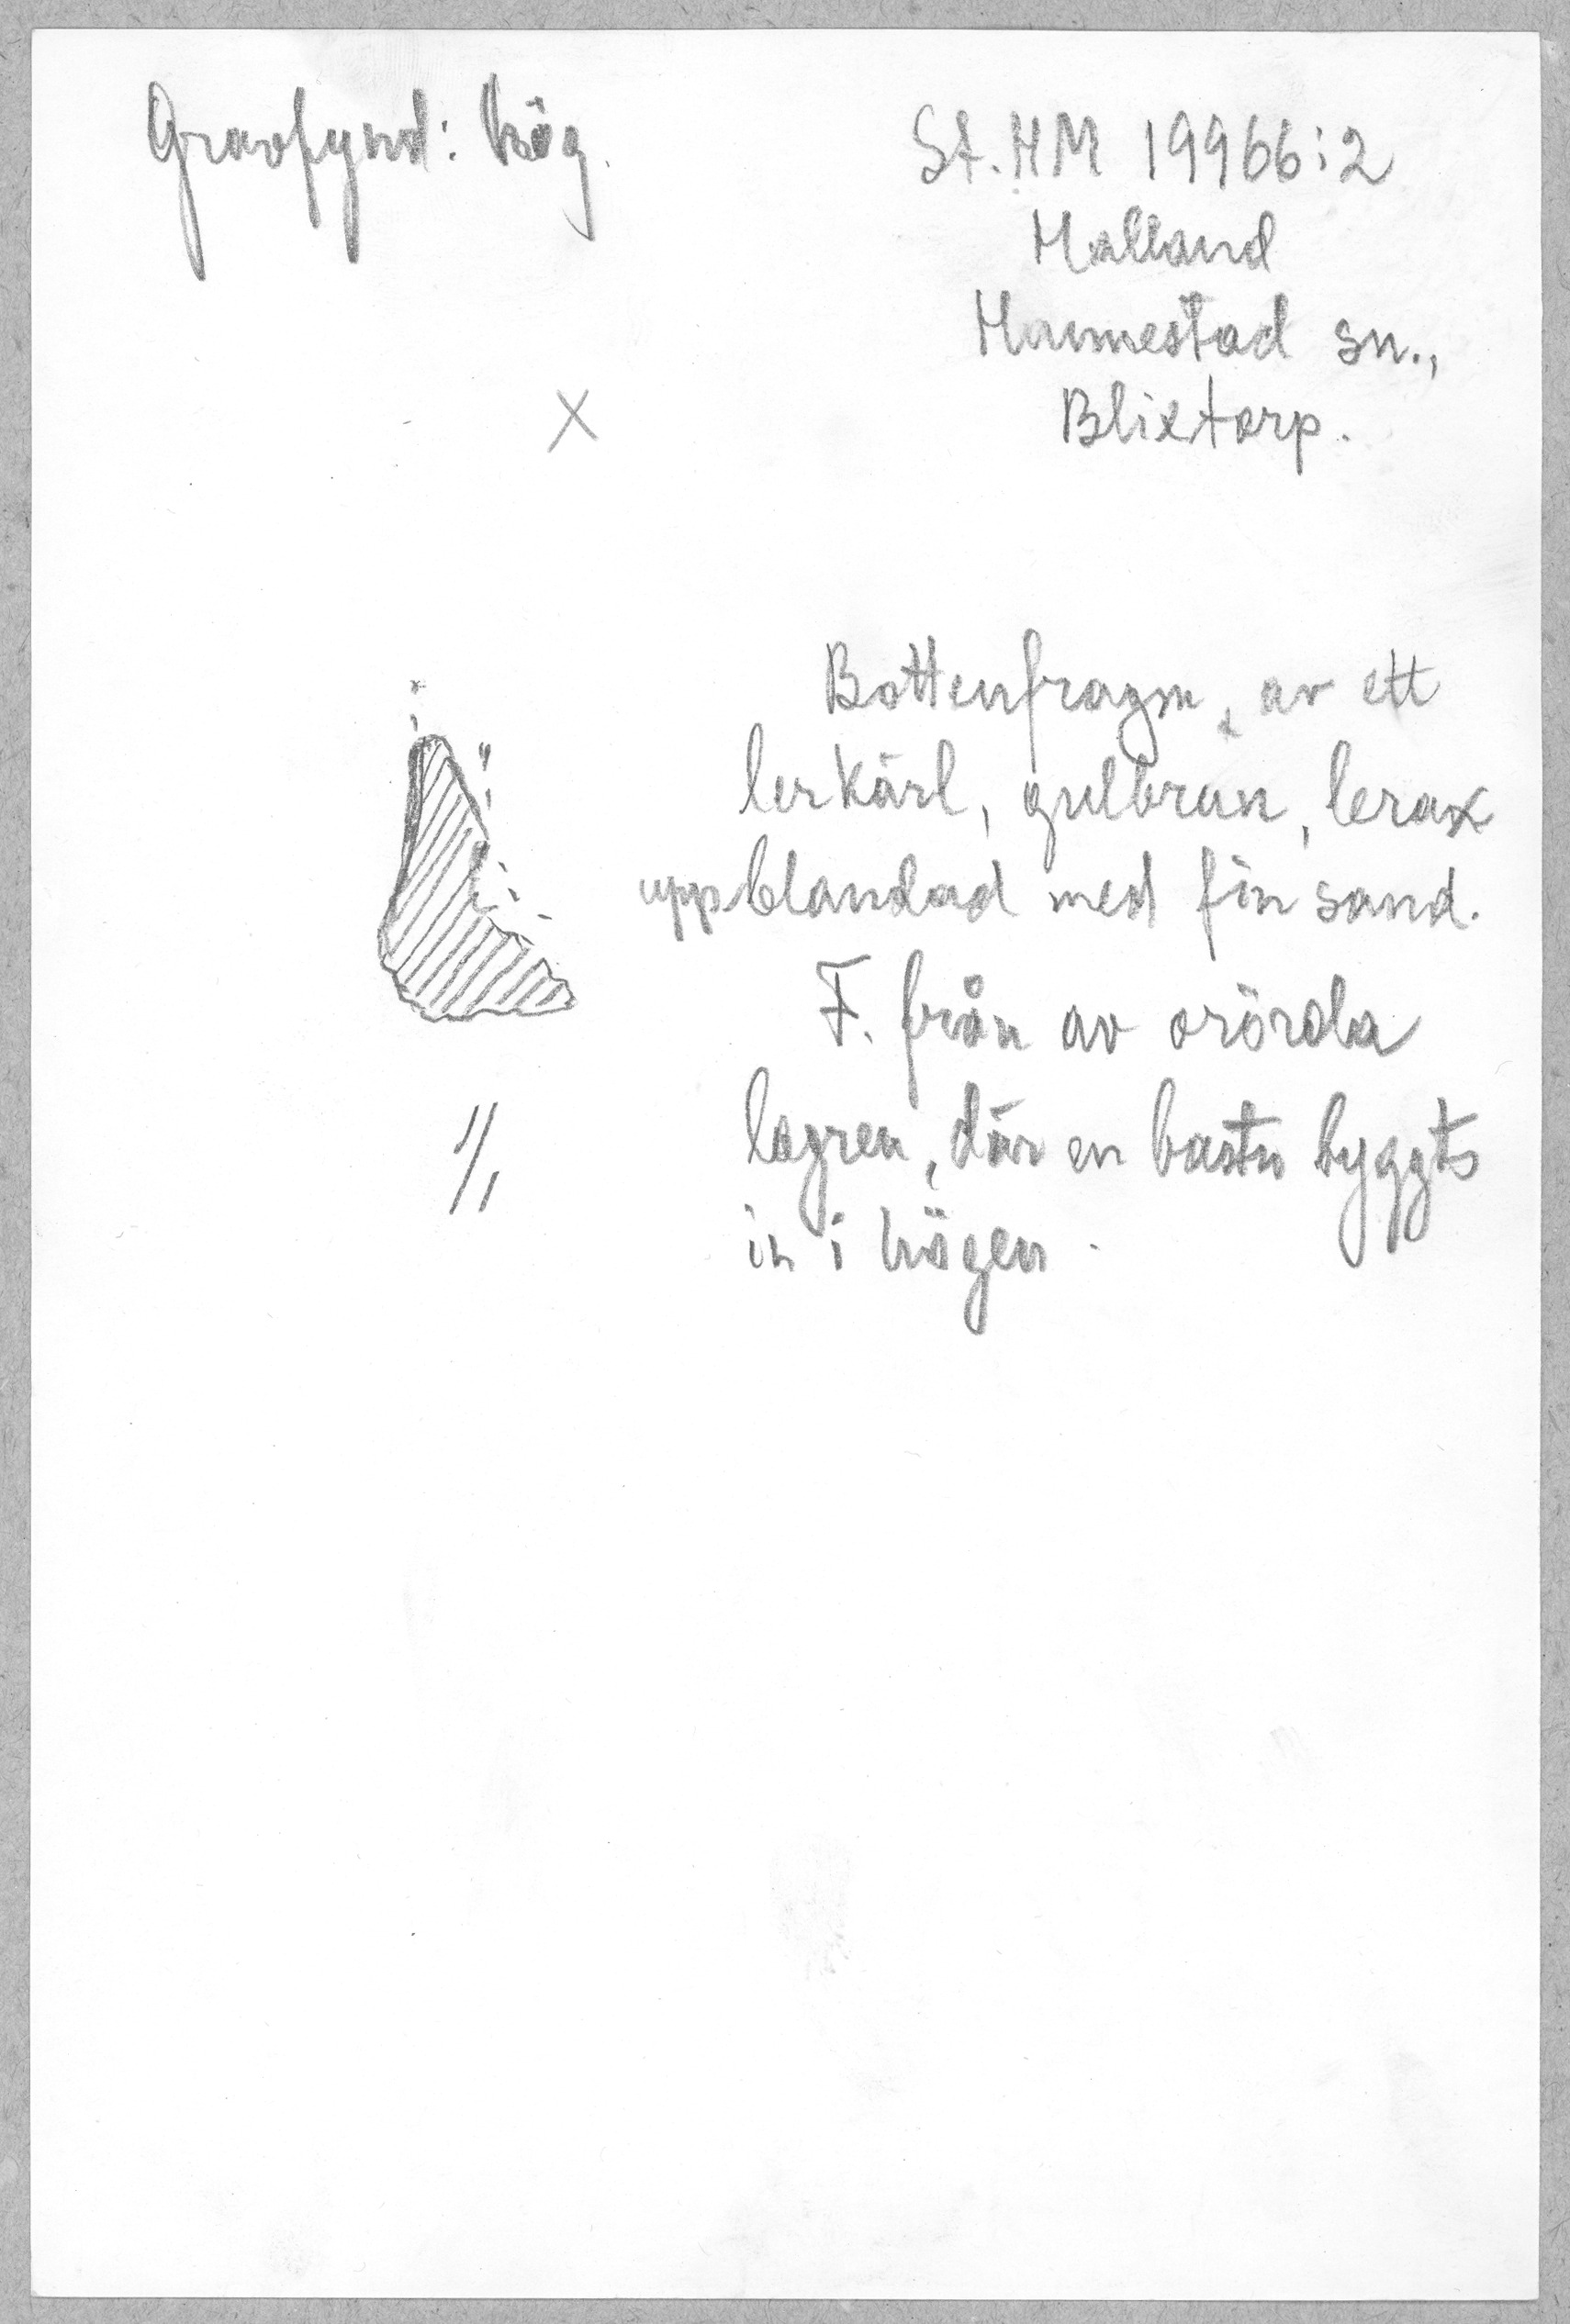 Gravfynd: hög.
St. HM 19966:2
Halland
Hannestad sn.,
Blixtorp.
X
Bottenfragm. av ett
lerkärl, gulbrun, leran
uppblandad med fin sand.
F. från av orörda
lagren, där en bastu byggts
in i högen.
1/1